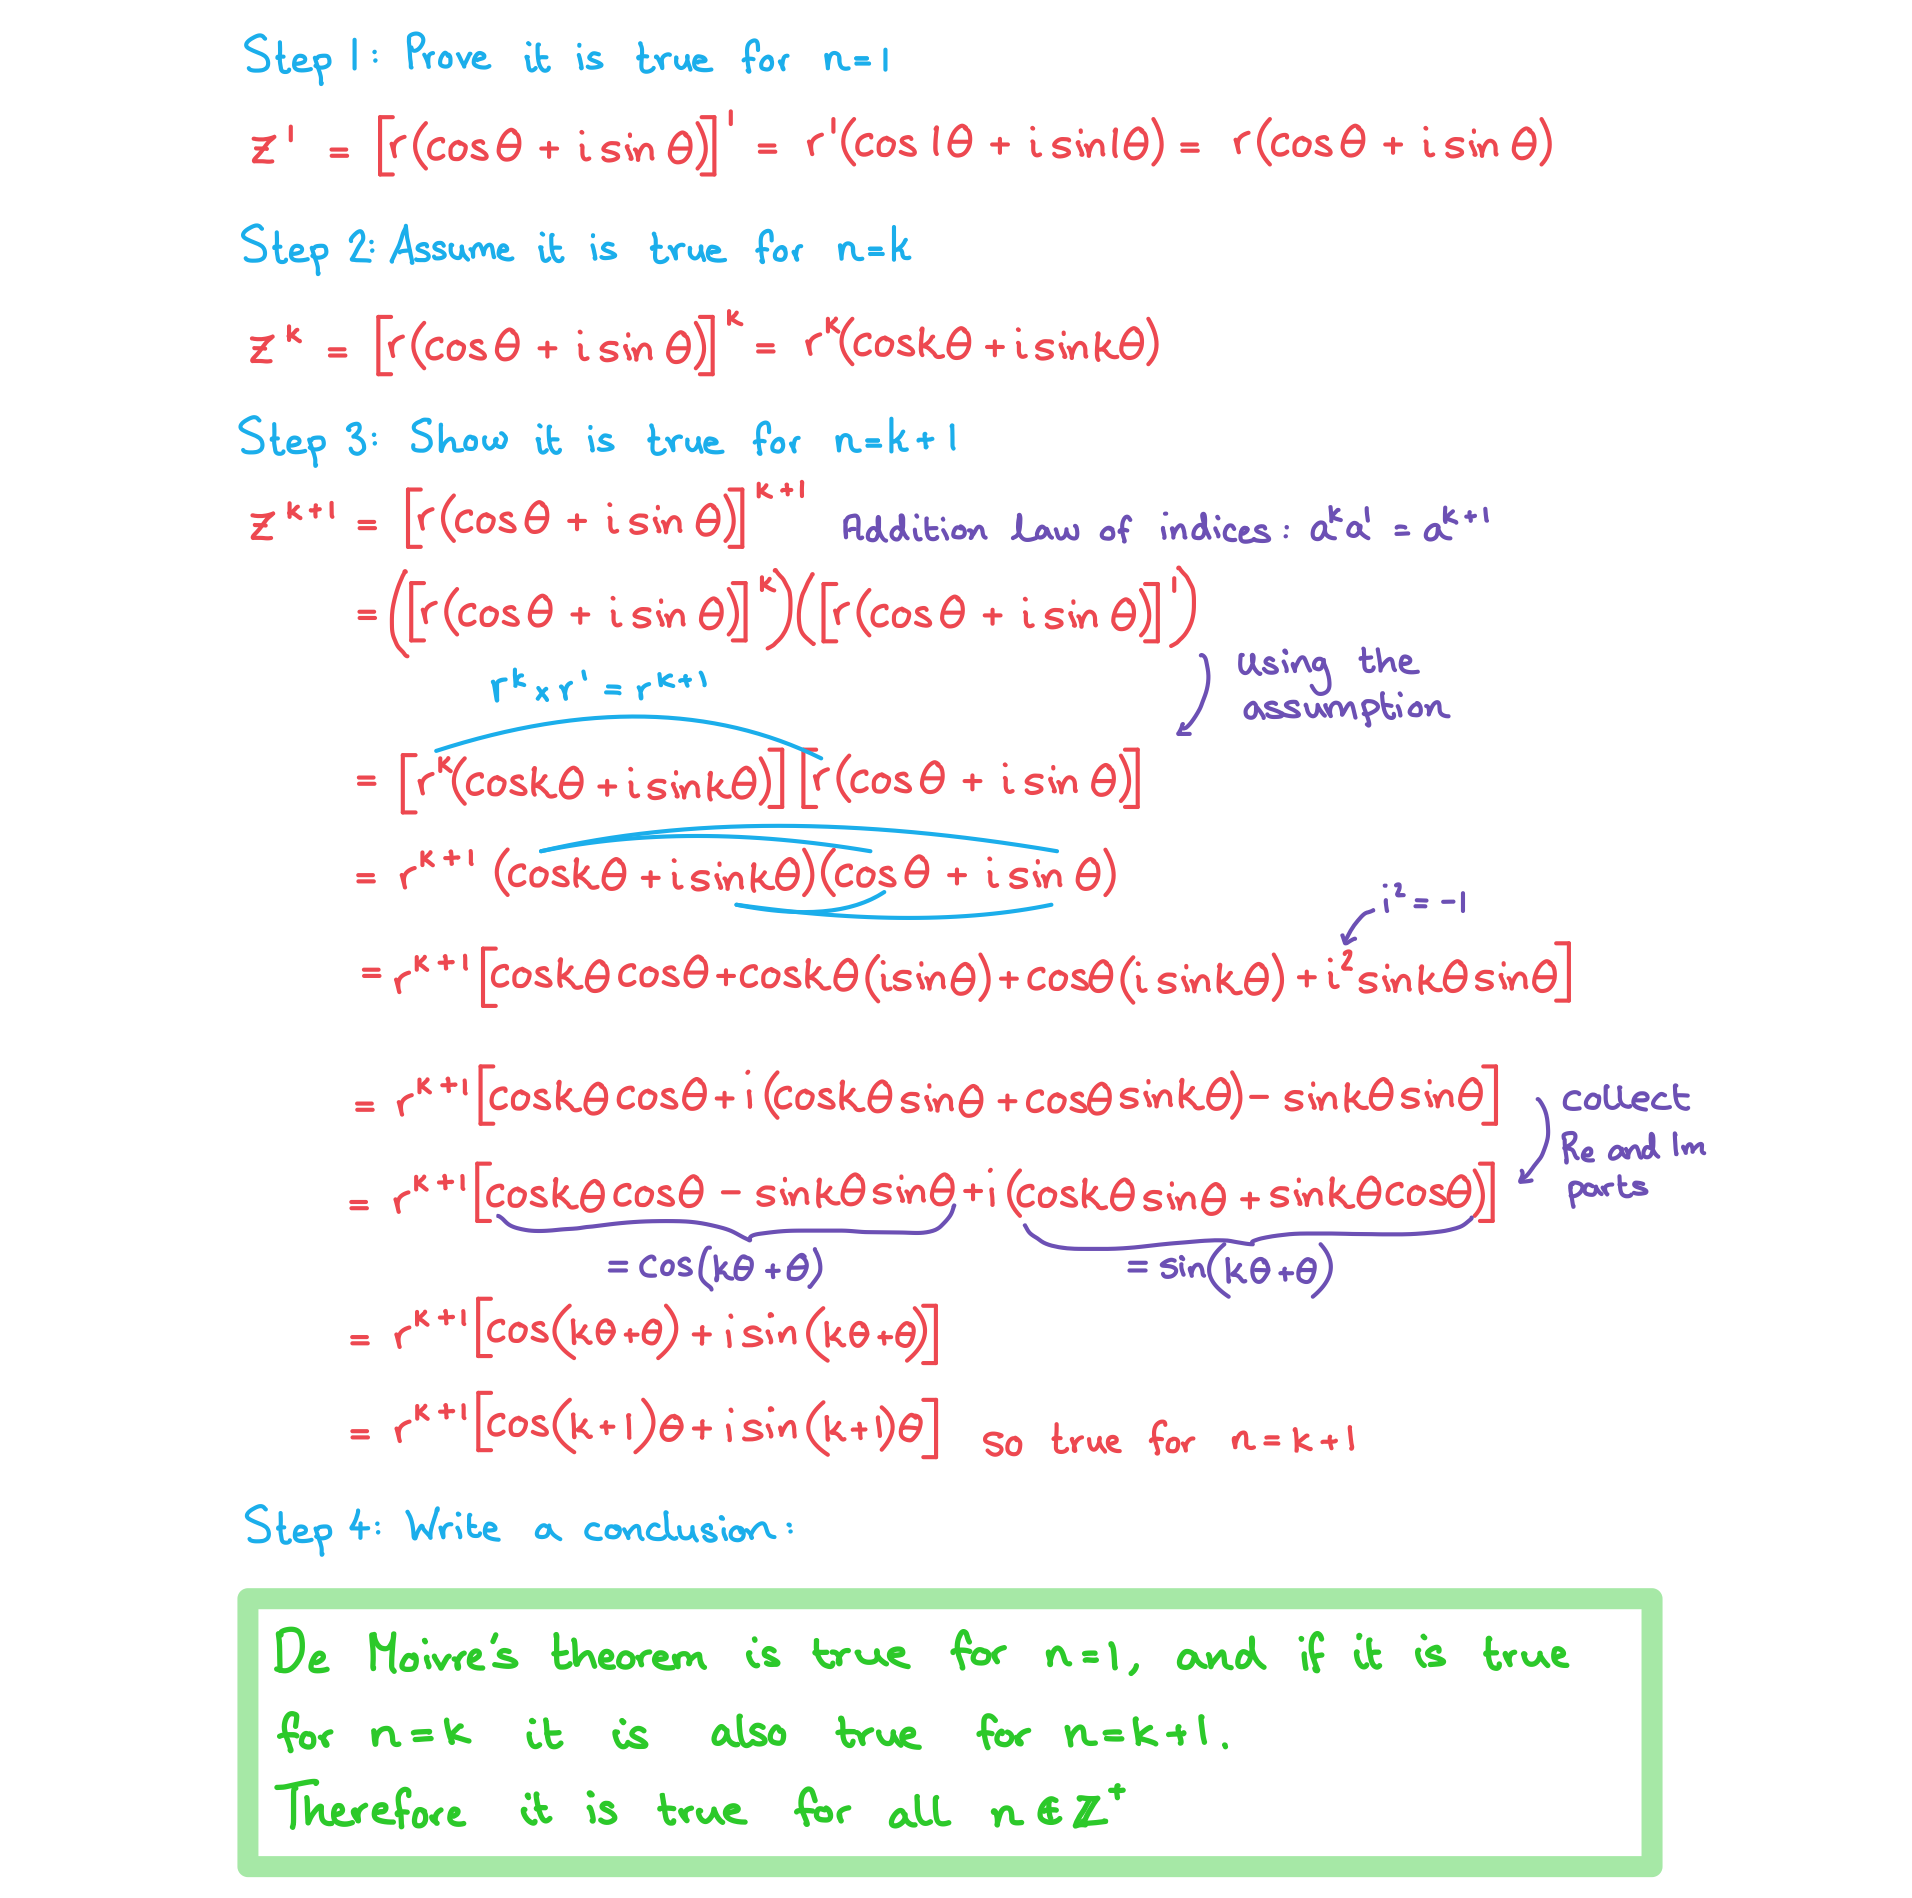 Step 1: Prove it is true for n=1
z¹ = [r(cosθ + i sin θ)]¹ = r¹(cos 1θ + i sin1θ) = r(cosθ + i sin θ)
Step 2: Assume it is true for n=k
zᵏ = [r(cosθ + i sin θ)]ᵏ = rᵏ(coskθ + i sinkθ)
Step 3: Show it is true for n=k+1
zᵏ⁺¹ = [r(cosθ + i sin θ)]ᵏ⁺¹ Addition law of indices: aᵏa¹ = aᵏ⁺¹
= ([r(cosθ + i sin θ)]ᵏ)([r(cosθ + i sin θ)]¹)
using the
assumption
rᵏ × r¹ = rᵏ⁺¹
= [rᵏ(coskθ + i sinkθ)][r(cosθ + i sin θ)]
= rᵏ⁺¹ (coskθ + i sinkθ)(cosθ + i sin θ)
i² = -1
= rᵏ⁺¹[coskθ cosθ + coskθ(isinθ) + cosθ(i sinkθ) + i²sinkθ sinθ]
= rᵏ⁺¹[coskθ cosθ + i(coskθ sinθ + cosθ sinkθ) - sinkθ sinθ]
collect
Re and Im
parts
= rᵏ⁺¹[coskθ cosθ - sinkθ sinθ + i(coskθ sinθ + sinkθ cosθ)]
= cos(kθ+θ) = sin(kθ+θ)
= rᵏ⁺¹[cos(kθ+θ) + i sin(kθ+θ)]
= rᵏ⁺¹[cos(k+1)θ + i sin(k+1)θ] so true for n=k+1
Step 4: Write a conclusion:
De Moivre's theorem is true for n=1, and if it is true
for n=k it is also true for n=k+1.
Therefore it is true for all n∈ℤ⁺